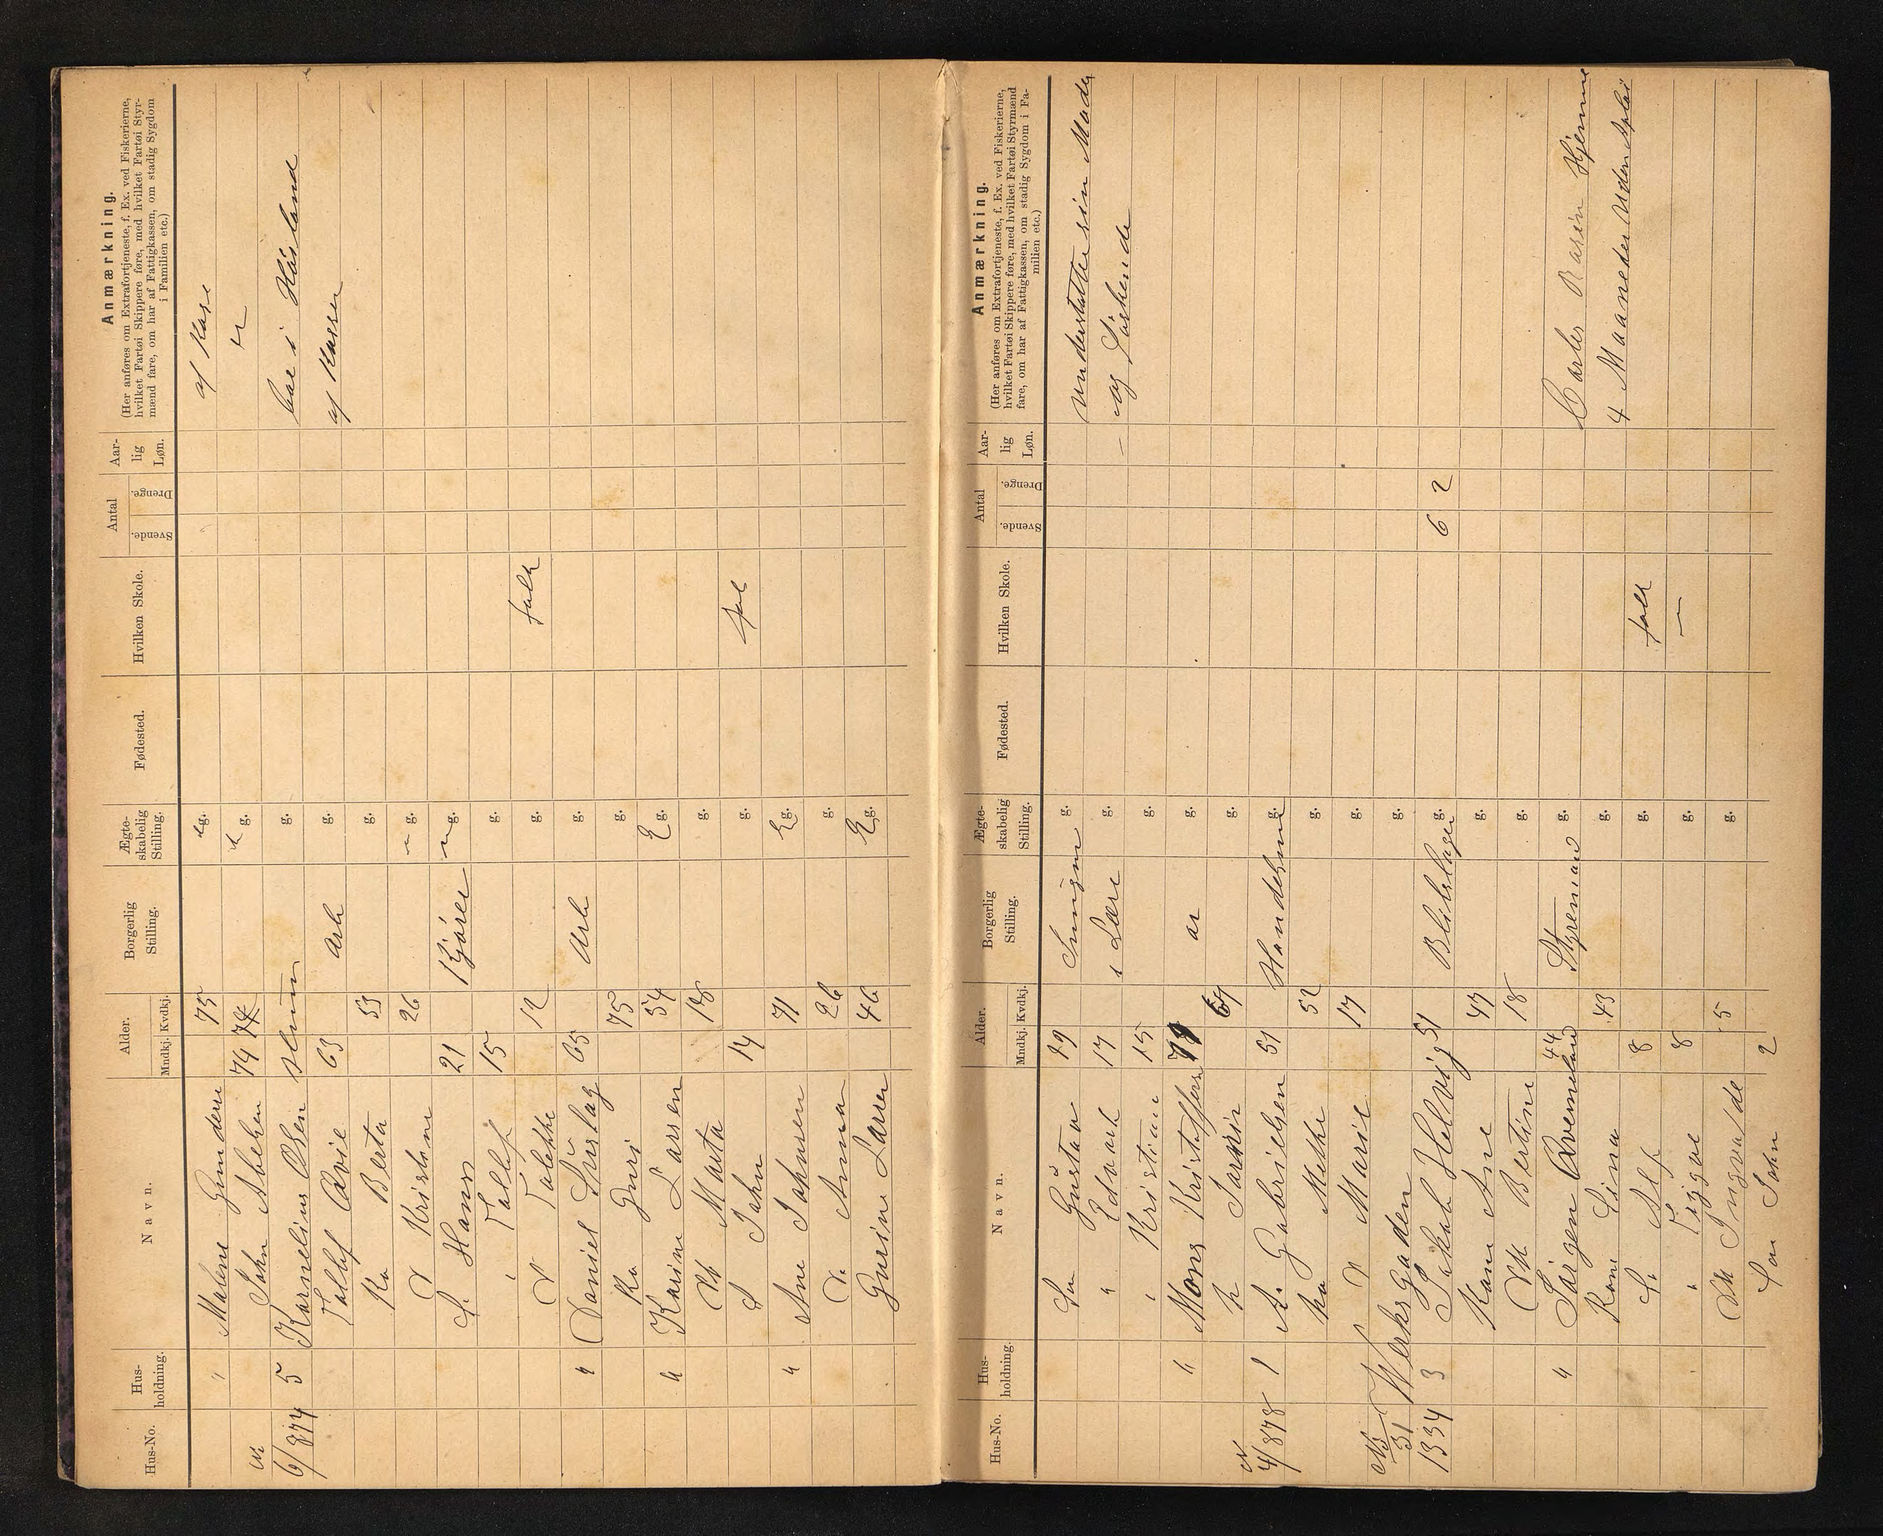 Hus-No. Hus-holdning. Navn. Alder. Mndkj. Kvdkj. Borgerlig Stilling. Ægte-skabelig Stilling. Fødested. Hvilken Skole. Antal Svende. Drenge. Aar-lig Løn. Anmærkning.
(Her anføres om Extrafortjeneste, f. Ex. ved Fiskerierne,
hvilket Fartøi Skippere føre, med hvilket Fartøi Styr-
mænd fare, om har af Fattigkassen, om stadig Sygdom
i Familien etc.)
" Malene Gunders 75 g. af Kase
John Abelsen 74 74 g.
6/874 5 Kornelius Olsen g. boe i Høsland
Tallef Qvie 63 Arb g. af Kassen
Ko Berta 53 g.
D Kristine 26 g.
S. Hans 21 Kjører g.
" Tallef 15 g.
D Talette 12 g. folk
" Daniel Suslag 65 Arb g.
Ko Guri 75 g.
" Karine Larsen 54 E g.
Dt Marta 18 g.
S John 14 g. fol
" Ane Johnsen 71 E g.
D. Anna 26 g.
Gurine Larsen 46 E g.
Hus-No. Hus-holdning. Navn. Alder. Mndkj. Kvdkj. Borgerlig Stilling. Ægte-skabelig Stilling. Fødested. Hvilken Skole. Antal Svende. Drenge. Aar-lig Løn. Anmærkning.
(Her anføres om Extrafortjeneste, f. Ex. ved Fiskerierne,
hvilket Fartøi Skippere føre, med hvilket Fartøi Styrmænd
fare, om har af Fattigkassen, om stadig Sygdom i Fa-
milien etc.)
Søn Gustav 19 g. understøtter sin Moder
" Edvard 17 i Lære g. og Søskende
" Kristian 15 g.
" Mons Kristoffersen g.
g.
4/878 1 A. Gabrielsen 51 Handelsm g.
ko Mette 52 g.
D Marie 17 g.
No 31 Werksgaden g.
1334 3 Jakob Helvig 51 Blikslager g. 6 2
Kone Ane 47 g.
Dtt Bertine 18 g.
" Jørgen Qverneland 44 Styrmand g. Hjemme
Kone Sina 43 g. 4 Maaneder uden
S. Alf 8 g. folk
" Trygve 8 g. "
Dtt Ingvalde 5 g.
Søn John 2